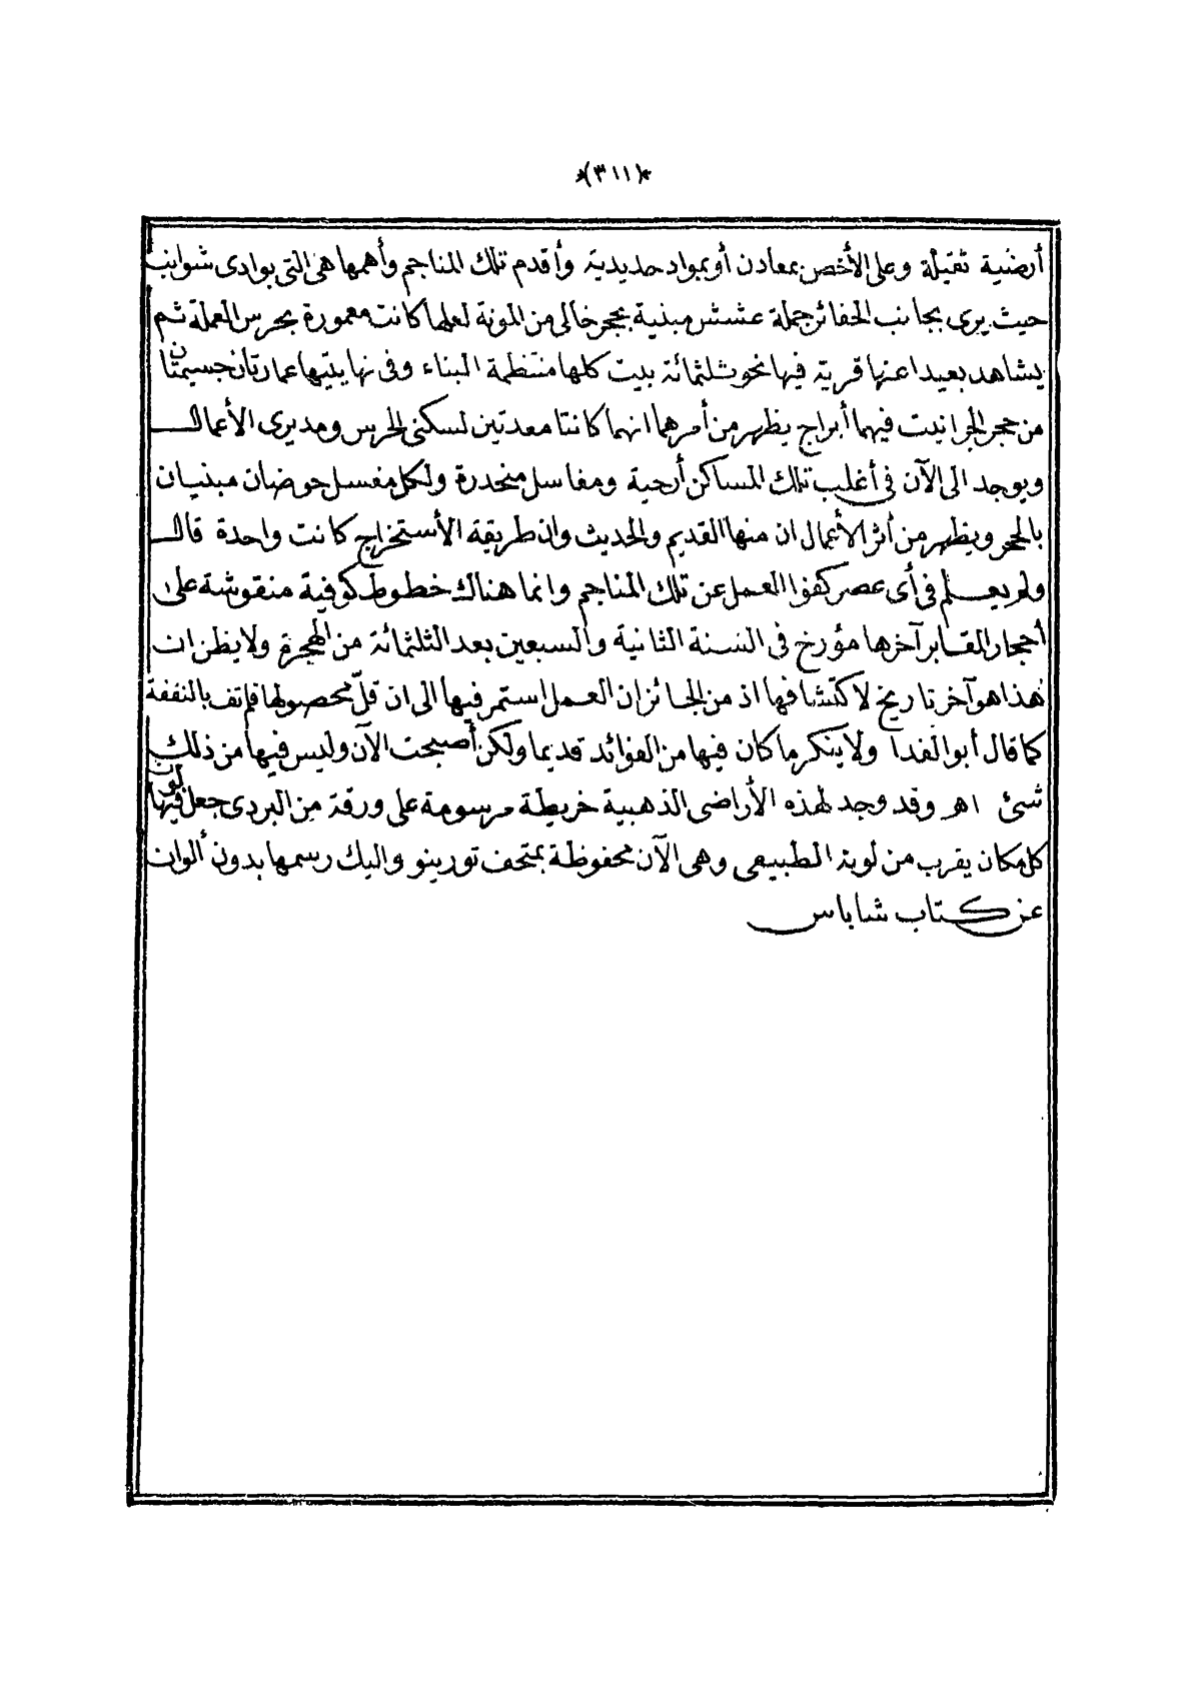 *(٣١١)*
أرضية ثقيلة وعلى الأخص بمعادن أو بمواد حديدية وأقدم تلك المناجم وأهمها هى التى بوادى شوانب
حيث يرى بجانب الحفائر جملة عشش مبنية بحجر خالى من المونة لعلها كانت معمورة بحرس العملة ثم
يشاهد بعيدا عنها قرية فيها نحو ثلثمائة بيت كلها منتظمة البناء وفى نهايتيها عمارتان جسيمتان
من حجر الجرانيت فيهما أبراج يظهر من أمرهما انهما كانتا معدتين لسكنى الحرس ومديرى الأعمال
ويوجد الى الآن فى أغلب تلك المساكن أرحية ومغاسل منحدرة ولكل مغسل حوضان مبنيان
بالحجر ويظهر من أثر الأعمال ان منها القديم والحديث وان طريقة الأستخراج كانت واحدة قال
ولم يعلم فى أى عصر كفوا العمل عن تلك المناجم وانما هناك خطوط كوفية منقوشة على
أحجار القابر آخرها مؤرخ فى السنة الثانية والسبعين بعد الثلثمائة من الهجرة ولا يظن ان
هذا هو آخر تاريخ لاكتشافها اذ من الجائز ان العمل استمر فيها الى ان قلّ محصولها فلم تف بالنفقة
كما قال أبو الفدا ولا ينكر ما كان فيها من الفوائد قديما ولكن أصبحت الآن وليس فيها من ذلك
شئ اهـ وقد وجد لهذه الأراضى الذهبية خريطة مرسومة على ورقة من البردى جعل فيها لون
كل مكان يقرب من لونه الطبيعى وهى الآن محفوظة بمتحف تورينو واليك رسمها بدون ألوان
عن كتاب شاباس